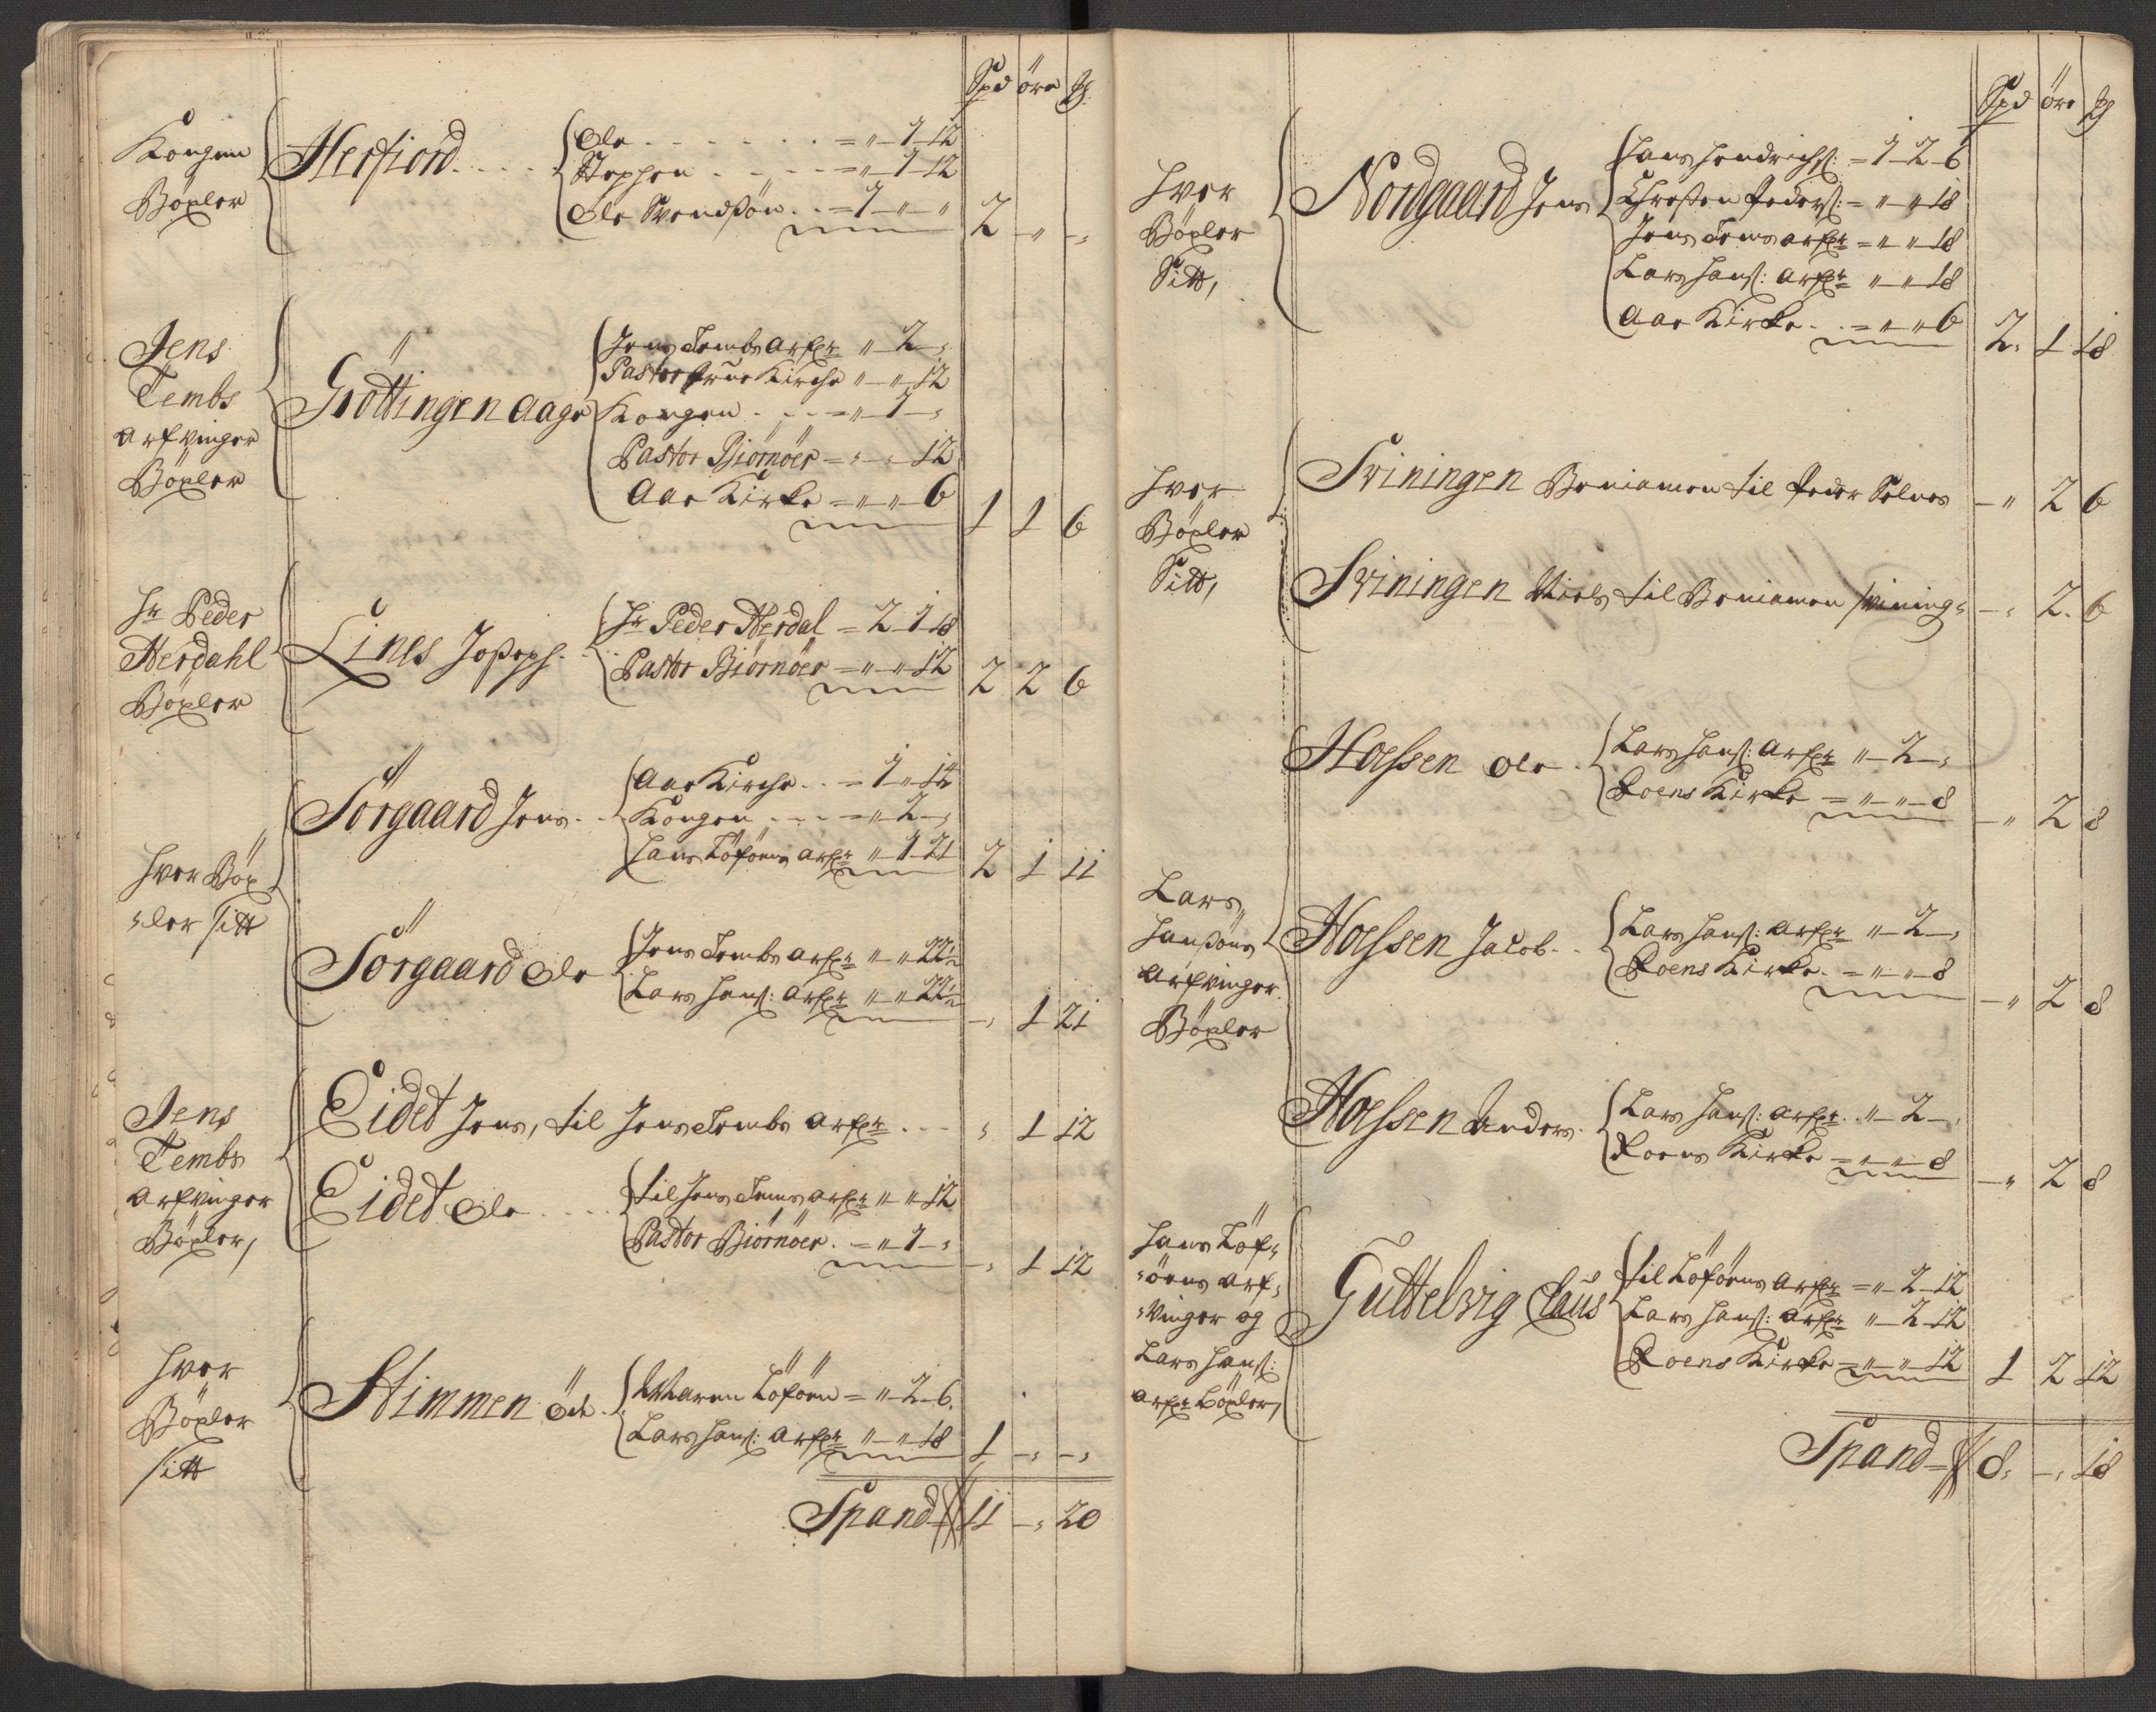 Spd öre ₰
Kongen
Böxler
Herfiord
Ole = " 1 12
Stephen = " 1 12
Ole Svendßön = 1 " "
2 " "
Jens
Tembs
Arfvinger
Böxler
Gröttingen Aage
Jens Tembs Arfr " 2 "
Pastor Frue Kirche " " 12
Kongen = " 1 "
Pastor Biörnöer = " " 12
Aae Kirke = " " 6
1 1 6
Hr Peder
Herdahl
Böxler
Lines Joseph
Hr Peder Herdal = 2 1 18
Pastor Biörnöer = " " 12
2 2 6
Hver Böx
"ler sitt
Sörgaard Jens
Aae Kirche = 1 " 14
Kongen = " 2 "
Hans Löföens Arfr " 1 21
2 1 11
Sörgaard Ole
Jens Tembs Arfr " " 22½
Lars Hanß: Arfr " " 22½
" 1 21
Jens
Tembs
Arfvinger
Böxler,
Eidet Jens, til Jens Tembs Arfr " 1 12
Eidet Ole
til Jens Tems Arfr " " 12
Pastor Biörnöer = " 1 "
" 1 12
Hver
Böxler
sitt
Stimmen
Maren Löföen = " 2 6
Lars Hanß: Arfr " " 18
1 " "
Spand 11 " 20
Spd öre ₰
Hver
Böxler
Sitt,
Nordgaard Jens
Hans Hendrichß: = 1 2 6
Chresten Pederß: = " " 18
Jens Tems Arfr = " " 18
Lars Hanß: Arfr " " 18
Aae Kirke = " " 6
2 1 18
Hver
Böxler
Sitt,
Sviningen Beniamen til Peder Selnes " 2 6
Sviningen Niels til Beniamen Svining= " 2 6
Hoessen Ole
Lars Hanß: Arfr " 2 "
Roens Kirke = " " 8
" 2 8
Lars
Hanßöns
Arfvinger
Böxler
Hoessen Jacob
Lars Hanß: Arfr " 2 "
Roens Kirke = " " 8
" 2 8
Hoessen Anders
Lars Hanß: Arfr " 2 "
Roens Kirke = " " 8
" 2 8
Hans Löf=
"öens Arf=
"vinger og
Lars Hanß:
Arfr Böxler,
Gulteluig Claus
til Löföens Arfr = " 2 12
Lars Hanß: Arfr " 2 12
Roens Kirke = " " 12
1 2 12
Spand 8 " 18